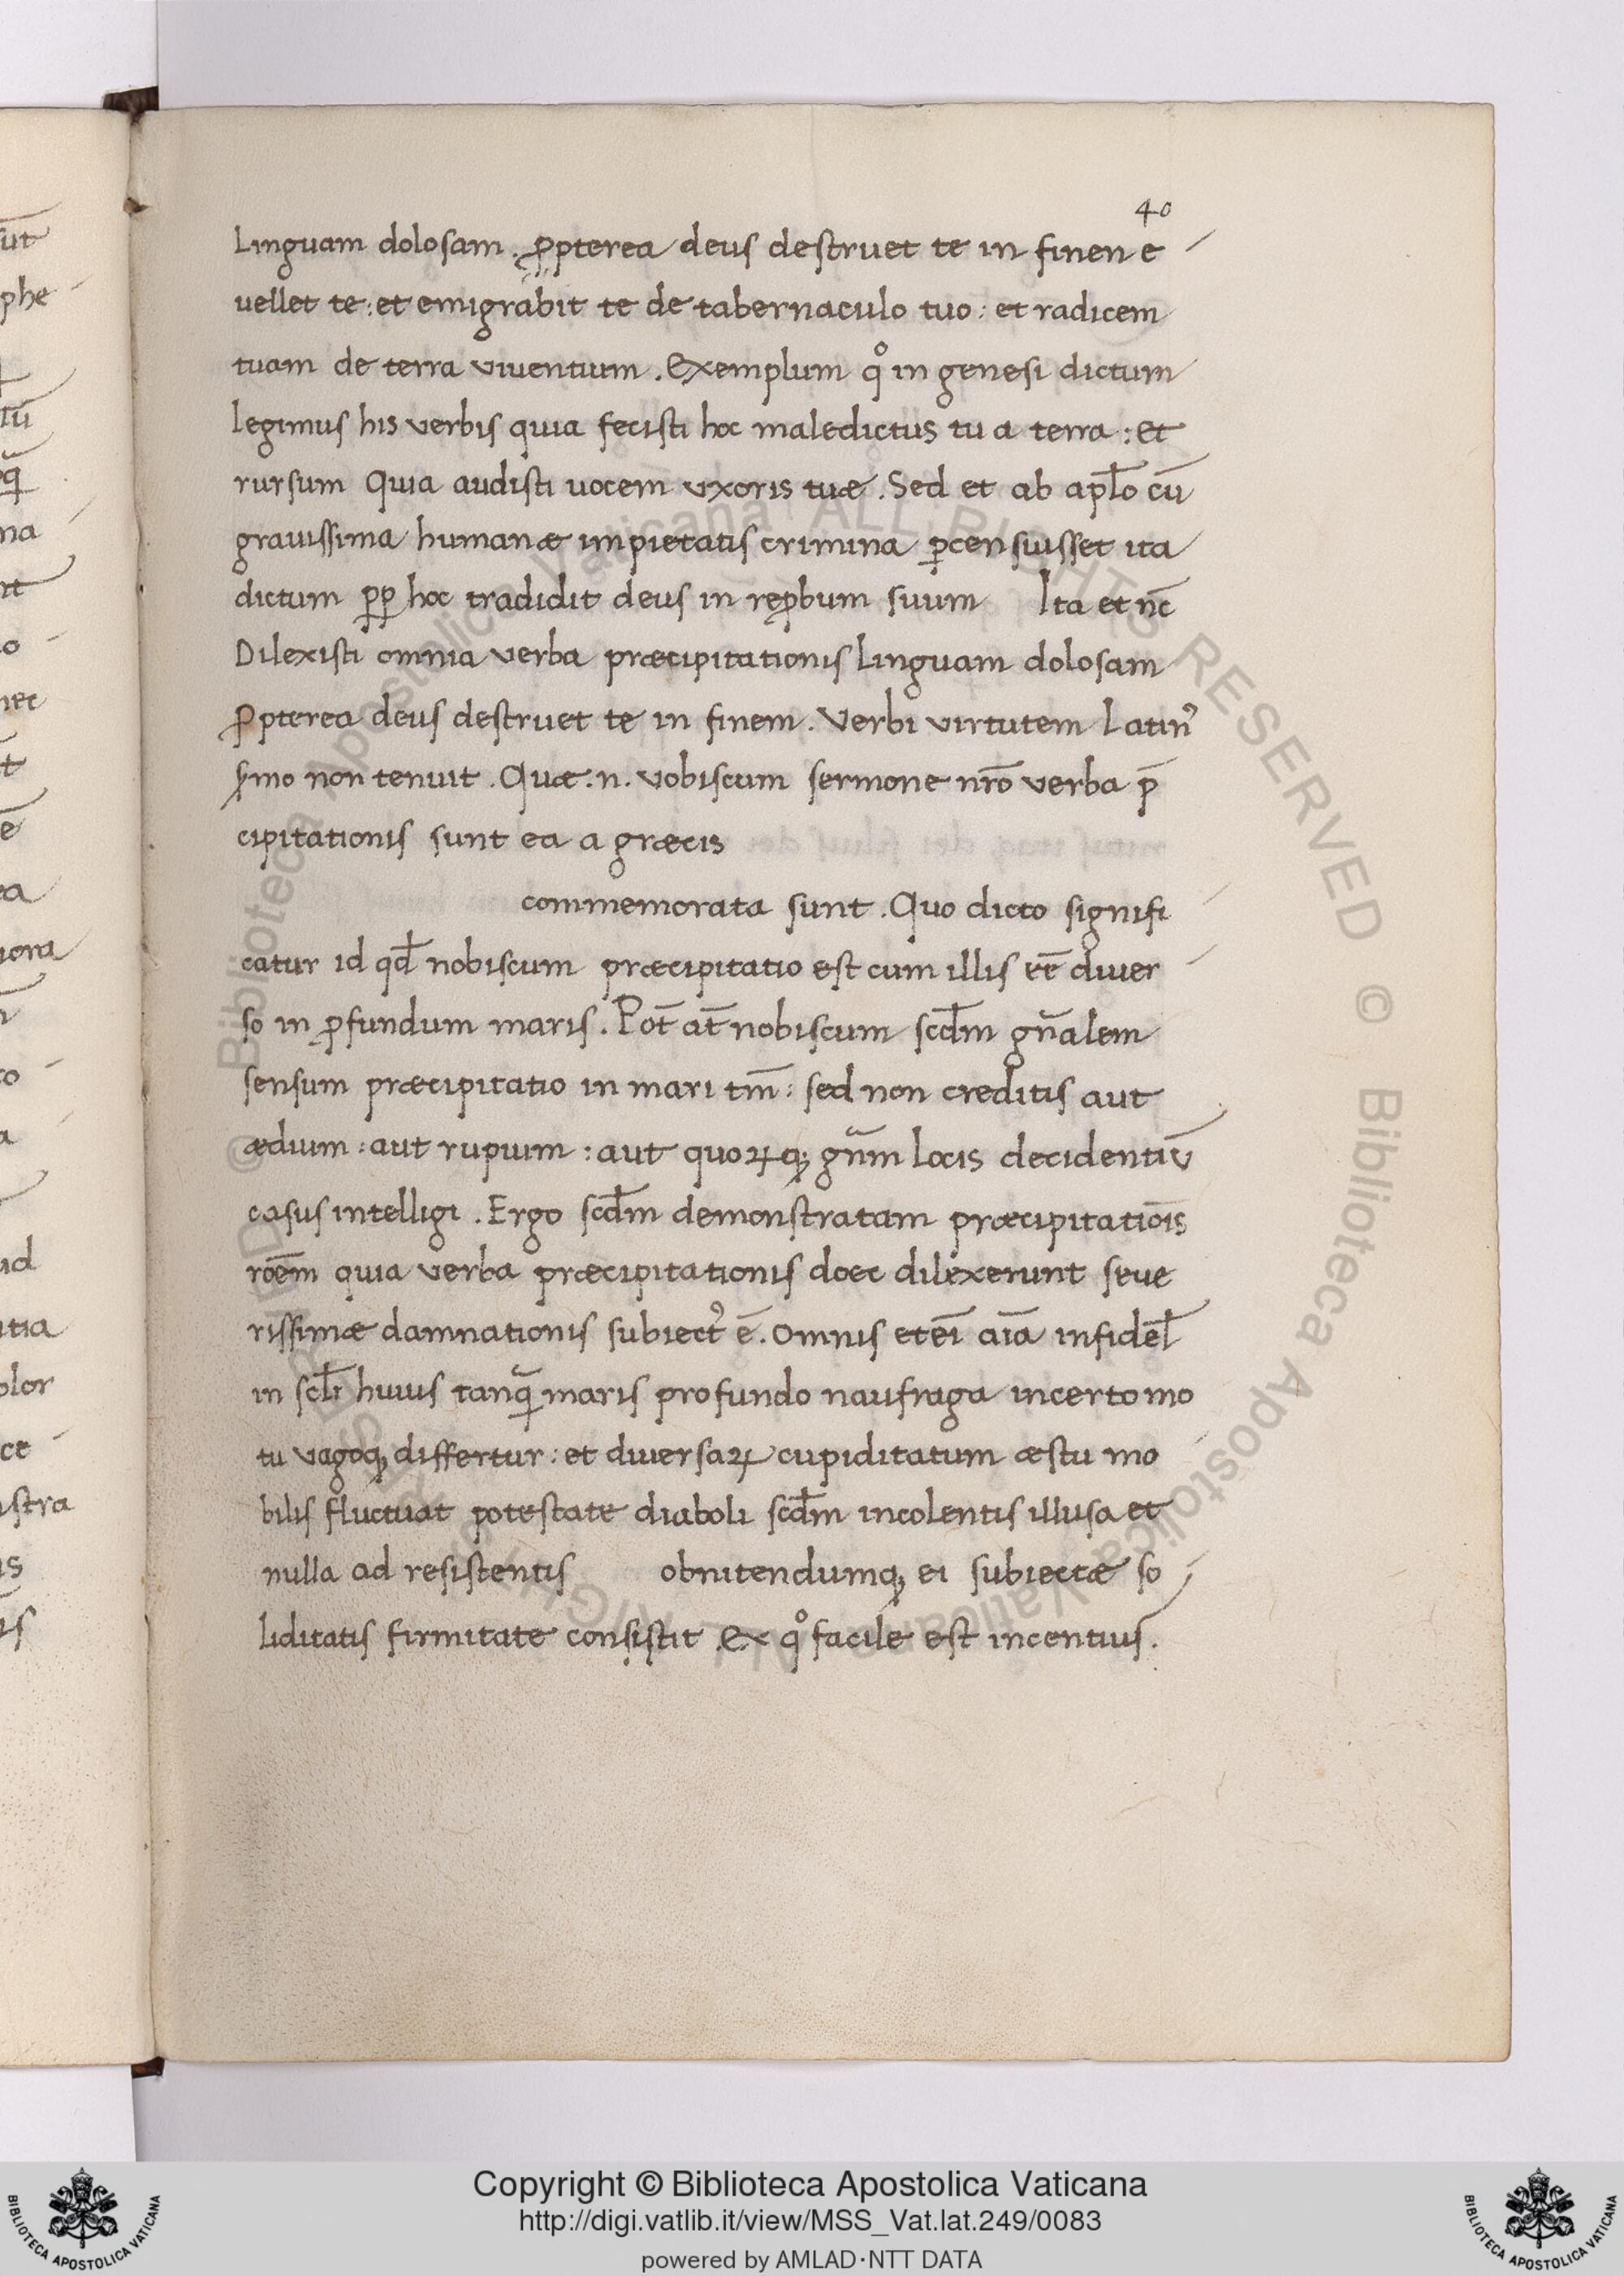 40
Linguam dolosam. ꝓpterea deus destruet te in finen e
vellet te: et emigrabit te de tabernaculo tuo: et radicem
tuam de terra viventium. Exemplum qͦ in genesi dictum
legimus his verbis quia fecisti hoc maledictus tu a terra: et
rursum Quia audisti uocem vxoris tuæ. Sed et ab apl̄o cū
grauissima humanæ impietatis crimina ꝑcensuisset ita
dictum ꝓꝑ hoc tradidit deus in reꝓbum suum Ita et nc̄
Dilexisti omnia verba præcipitationis Linguam dolosam
Ꝓpterea deus destruet te in finem. Verbi virtutem Latinꝰ
ẜmo non tenuit. Quæ .n. vobiscum sermone nr̄o verba p̄
cipitationis sunt ea a græcis
commemorata sunt. Quo dicto signifi
catur id qd̄ nobiscum præcipitatio est cum illis ēē diuer
so in ꝓfundum maris. Pot̄ at̄ nobiscum scd̄m gn̄alem
sensum præcipitatio in mari tm̄: sed non creditis aut
ædium: aut rupium: aut quoꝝqꝫ gn̄m Locis decidentiū
casus intelligi. Ergo scd̄m demonstratam præcipitatiōis
roēm quia verba præcipitationis doec dilexerunt seue
rissimæ damnationis subiectꝰ ē. Omnis eteī aīa infidel̄
in scl̄i huius tanꝗ maris profundo naufraga incerto mo
tu vagoqꝫ differtur: et diuersaꝝ cupiditatum æstu mo
bilis fluctuat potestate diaboli scd̄m incolentis illusa et
nulla ad resistentis obnitendumqꝫ ei subiectæ so
liditatis firmitate consistit Ex qͦ facile est incentius.
ūt
phe
iū
na
nt
io
nec
t
ē
ea
iora
co
a
id
itia
olor
ce
istra
is
Copyright © Biblioteca Apostolica Vaticana
http://digi.vatlib.it/view/MSS_Vat.lat.249/0083
powered by AMLAD·NTT DATA
BIBLIOTECA APOSTOLICA VATICANA
BIBLIOTECA APOSTOLICA VATICANA